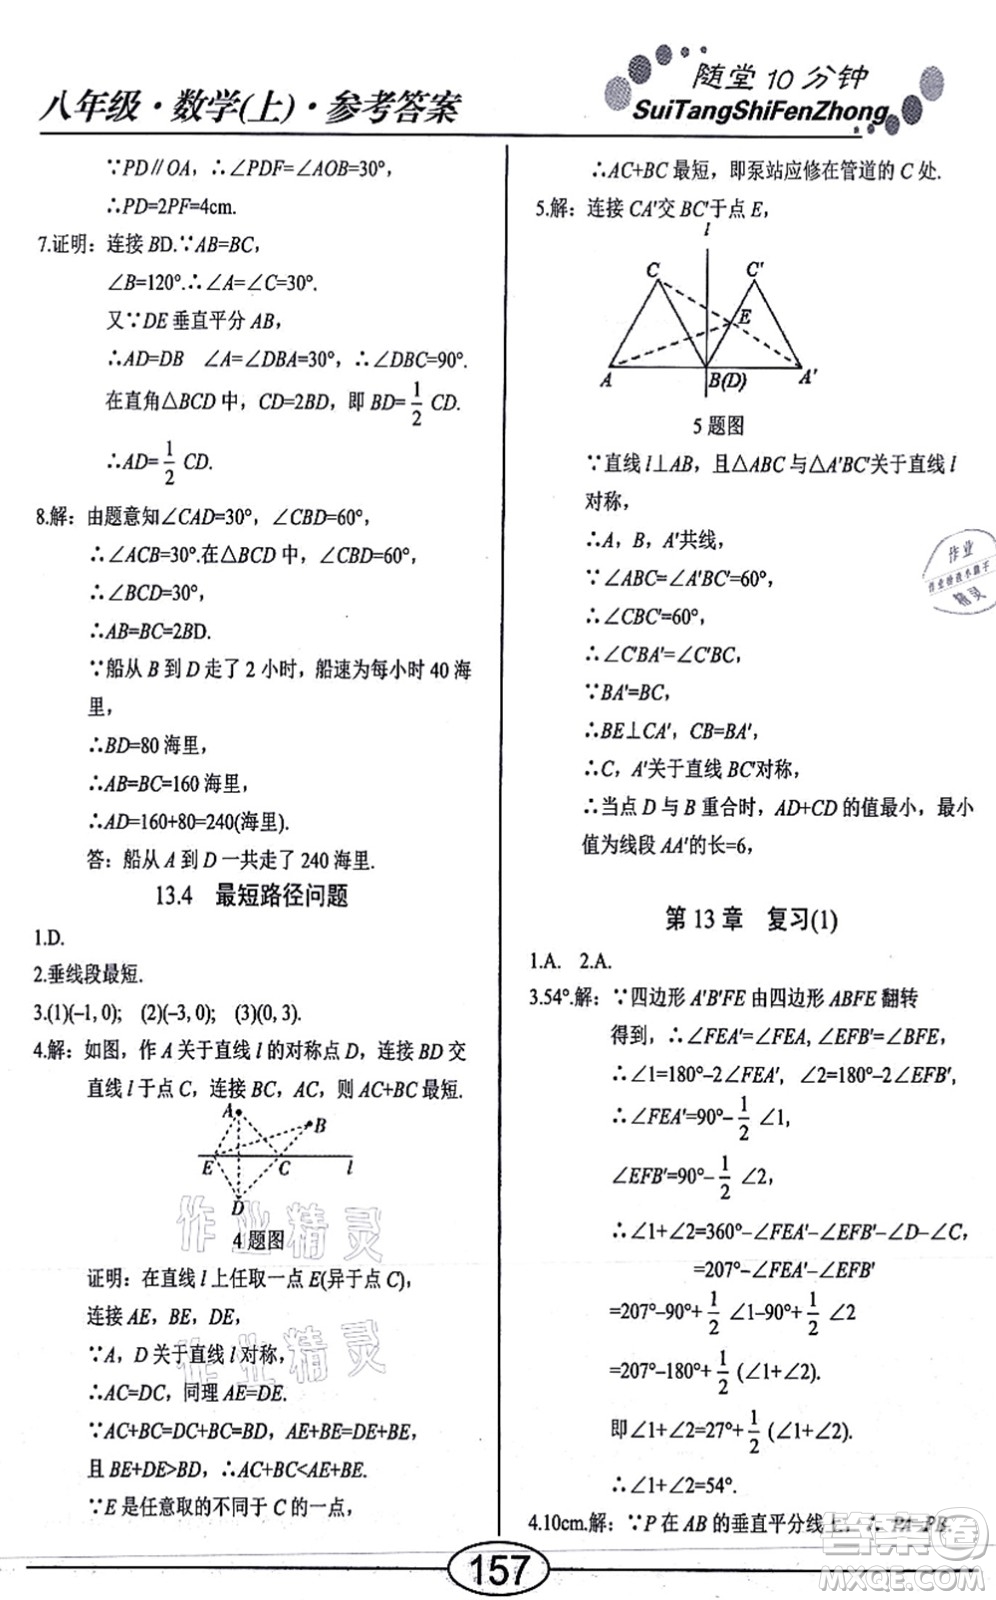 八年级·数学(上)·参考答案
随堂10分钟
SuiTangShiFenZhong
∵PD∥OA，∴∠PDF=∠AOB=30°，
∴PD=2PF=4cm.
7.证明：连接BD.∵AB=BC，
∠B=120°.∴∠A=∠C=30°.
又∵DE垂直平分AB，
∴AD=DB ∠A=∠DBA=30°，∴∠DBC=90°.
在直角△BCD中，CD=2BD，即BD=1/2 CD.
∴AD=1/2 CD.
8.解：由题意知∠CAD=30°，∠CBD=60°，
∴∠ACB=30°.在△BCD中，∠CBD=60°，
∴∠BCD=30°，
∴AB=BC=2BD.
∵船从B到D走了2小时，船速为每小时40海
里，
∴BD=80海里，
∴AB=BC=160海里，
∴AD=160+80=240(海里).
答：船从A到D一共走了240海里.
13.4 最短路径问题
1.D.
2.垂线段最短.
3.(1)(–1, 0); (2)(–3, 0); (3)(0, 3).
4.解：如图，作A关于直线l的对称点D，连接BD交
直线l于点C，连接BC，AC，则AC+BC最短.
A
B
E
C
l
D
4题图
证明：在直线l上任取一点E(异于点C)，
连接AE，BE，DE，
∵A，D关于直线l对称，
∴AC=DC，同理AE=DE.
∵AC+BC=DC+BC=BD，AE+BE=DE+BE，
且BE+DE>BD，∴AC+BC<AE+BE.
∵E是任意取的不同于C的一点，
∴AC+BC最短，即泵站应修在管道的C处.
5.解：连接CA′交BC′于点E，
l
C
C′
E
A
B(D)
A′
5题图
∵直线l⊥AB，且△ABC与△A′BC′关于直线l
对称，
∴A，B，A′共线，
∵∠ABC=∠A′BC′=60°，
∴∠CBC′=60°，
∴∠C′BA′=∠C′BC，
∵BA′=BC，
∴BE⊥CA′，CB=BA′，
∴C，A′关于直线BC′对称，
∴当点D与B重合时，AD+CD的值最小，最小
值为线段AA′的长=6，
第13章 复习(1)
1.A. 2.A.
3.54°.解：∵四边形A′B′FE由四边形ABFE翻转
得到，∴∠FEA′=∠FEA, ∠EFB′=∠BFE，
∴∠1=180°–2∠FEA′，∠2=180°–2∠EFB′，
∴∠FEA′=90°–1/2 ∠1，
∠EFB′=90°–1/2 ∠2，
∴∠1+∠2=360°–∠FEA′–∠EFB′–∠D–∠C，
=207°–∠FEA′–∠EFB′
=207°–90°+1/2 ∠1–90°+1/2 ∠2
=207°–180°+1/2 (∠1+∠2).
即∠1+∠2=27°+1/2 (∠1+∠2).
∴∠1+∠2=54°.
4.10cm.解：∵P在AB的垂直平分线上，∴PA=PB.
157
作业精灵
作业精灵
作业
作业检查小助手
精灵
答案圈
MXQE.COM